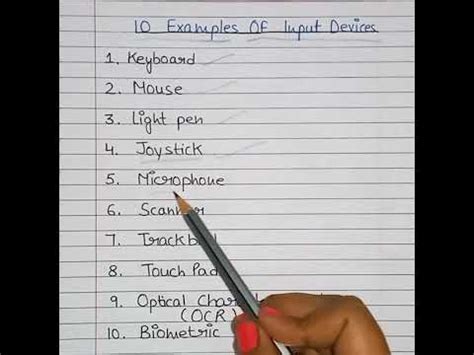 10 Examples Of Input Devices
1. Keyboard
2. Mouse
3. Light pen
4. Joystick
5. Microphone
6. Scanner
7.
8. Touch Pad
9. Optical
(OCR)
10. Biometric